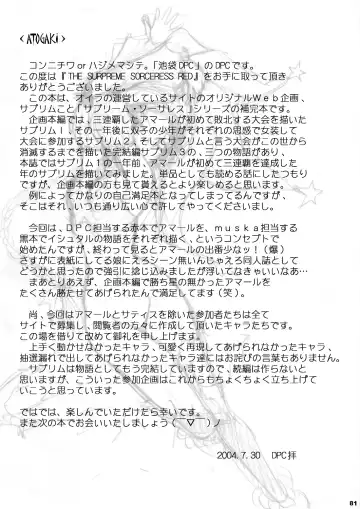 <ATOGAKI>
コンニチワorハジメマシテ。「池袋DPC」のDPCです。
この度は『THE SURPREME SORCERESS RED』をお手に取って頂き
ありがとうございました。
この本は、オイラの運営しているサイトのオリジナルWeb企画、
サプリムこと「サプリーム・ソーサレス」シリーズの補完本です。
企画本編では、三連覇したアマールが初めて敗北する大会を描いた
サプリム1、その一年後に双子の少年がそれぞれの思惑で女装して
大会に参加するサプリム2、そしてサプリムと言う大会がこの世から
消滅するまでを描いた完結編サプリム3の、三つの物語があり、
本誌ではサプリム1の一年前、アマールが初めて三連覇を達成した
年のサプリムを描いてみました。単品としても読める話にしたつもり
ですが、企画本編の方も見て貰えるとより楽しめると思います。
例によってかなりの自己満足本となってしまってるんですが、
そこはそれ、いつも通り広い心で許してやってくださいまし。
今回は、DPC担当する赤本でアマールを、muska担当する
黒本でイシュタルの物語をそれぞれ描く、というコンセプトで
始めたんですが、終わって見るとアマールの出番少なッ！（爆）
さすがに表紙にしてる娘にえろシーン無いんじゃえろ同人誌として
どうかと思ったので強引に捻じ込みましたが浮いてなきゃいいなあ…
まあとりあえず、企画本編で勝ち星の無かったアマールを
たくさん勝たせてあげられたんで満足してます（笑）。
尚、今回はアマールとサティスを除いた参加者たちは全て
サイトで募集し、閲覧者の方々に作成して頂いたキャラたちです。
この場を借りて改めて御礼を申し上げます。
上手く動かせなかったキャラ、可愛く再現してあげられなかったキャラ、
抽選漏れで出してあげられなかったキャラ達にはお詫びの言葉もありません。
サプリムは物語としてもう完結していますので、続編は作らないと
思いますが、こういった参加企画はこれからもちょくちょく立ち上げて
いこうと思っています。
ではでは、楽しんでいただけたら幸いです。
また次の本でお会いいたしましょう(￣▽￣)ノ
2004.7.30 DPC拝
81